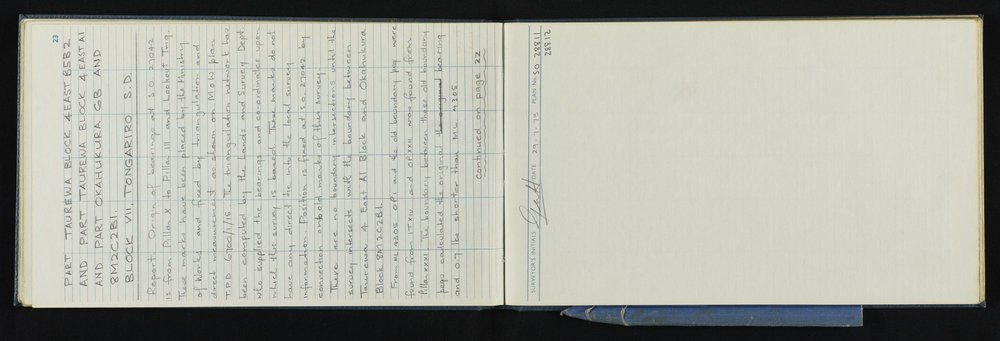 23
PART TAUREWA BLOCK 4 EAST B5B2
AND PART TAUREWA BLOCK 4 EAST A1
AND PART OKAHUKURA GB AND
8M2C2B1.
BLOCK VII, TONGARIRO S.D.
Report Origin of bearings at S.O. 27042
is from Pillar X to Pillar III and Lookout Trig.
These marks have been placed by the Ministry
of Works and fixed by triangulation and
direct measurement as shown on MoW plan
T.P.D 6700/1/15 The triangulation network has
been computed by the Lands and Survey Dept.
who supplied the bearings and co-ordinates upon
which this survey is based. These marks do not
have any direct tie into the local survey
information. Position is fixed at S.O. 27042 by
connection onto old marks of that survey.
There are no boundary intersections until the
survey intersects with the boundary between
Taurewa 4 East A1 Block and Okahukura
Block 8M2C2B1.
From ML 4305 OP and the old boundary peg were
found from ITXIV and OPXXII was found from
Pillar XXXI. The boundary between these old boundary
pegs calculated the original the original bearing
and 0.7 lks shorter than ML 4305
continued on page 22
SURVEYOR'S INITIALS DATE 29-7-73 PLAN No. SO 28811
28812